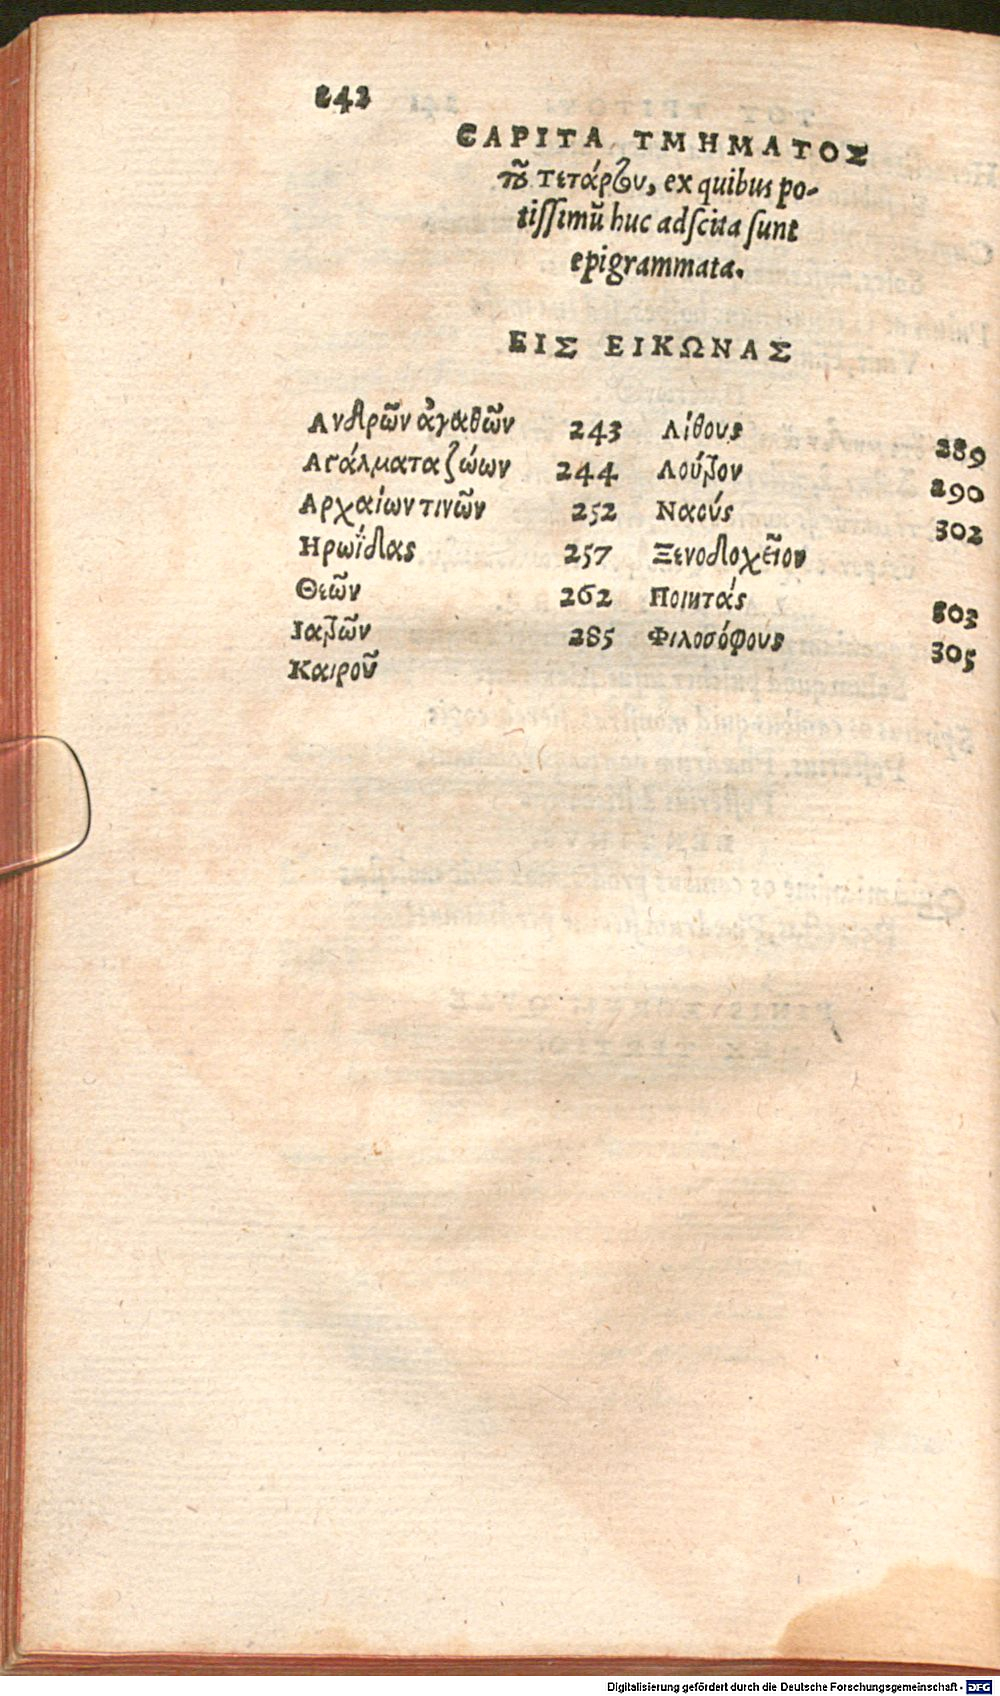 242
CAPITA ΤΜΗΜΑΤΟΣ
τοῦ τετάρτου, ex quibus po-
tissimũ huc adscita sunt
epigrammata.
ΕΙΣ ΕΙΚΩΝΑΣ
Ανδρῶν ἀγαθῶν 243
Αγάλματα ζώων 244
Αρχαίων τινῶν 252
Ηρωΐδας 257
Θεῶν 262
Ιαβῶν 285
Καιροῦ
Λίθους 289
Λούβον 290
Ναούς 302
Ξενοδοχεῖον
Ποιητάς 303
Φιλοσόφους 305
Digitalisierung gefördert durch die Deutsche Forschungsgemeinschaft - DFG